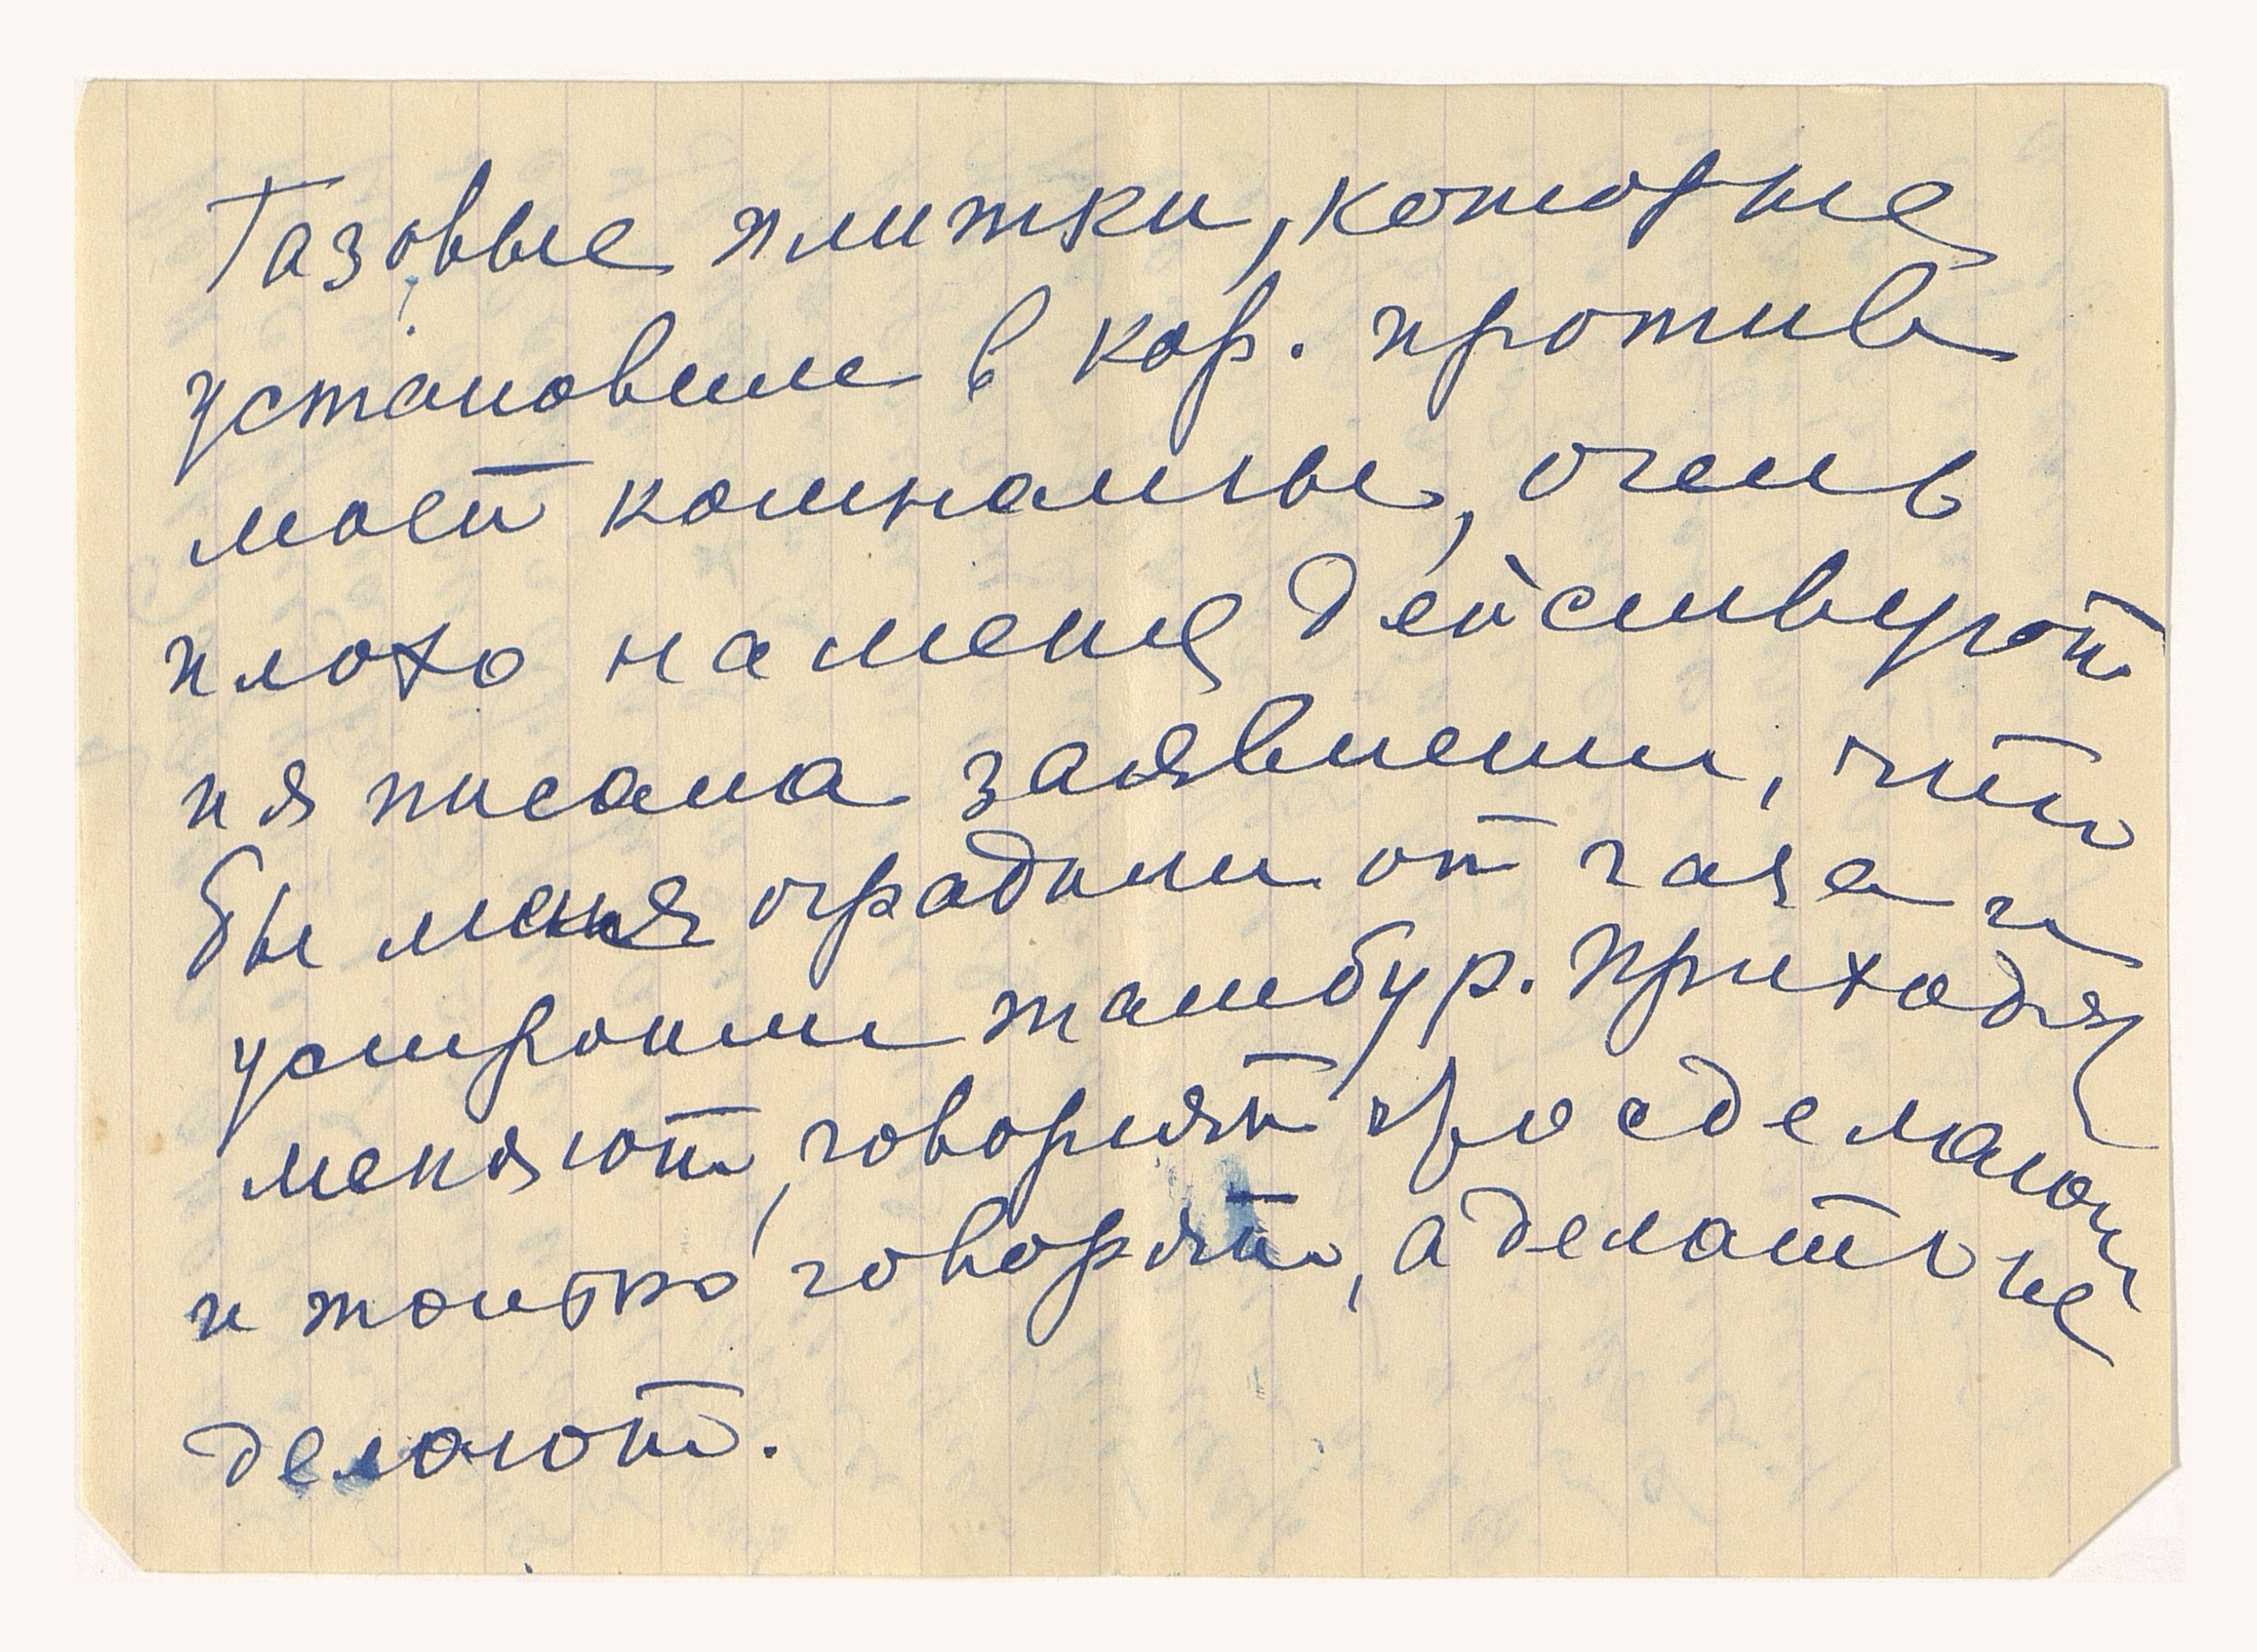 Газовые плитки, которые
установили в кор. против
моей комнаты, очень
плохо на меня действуют
и я писала заявлении, что
бы меня оградили от газа и
устроили тамбур. Приходят
меняют, говорят сделают
и только говорят, а делать не
делают.